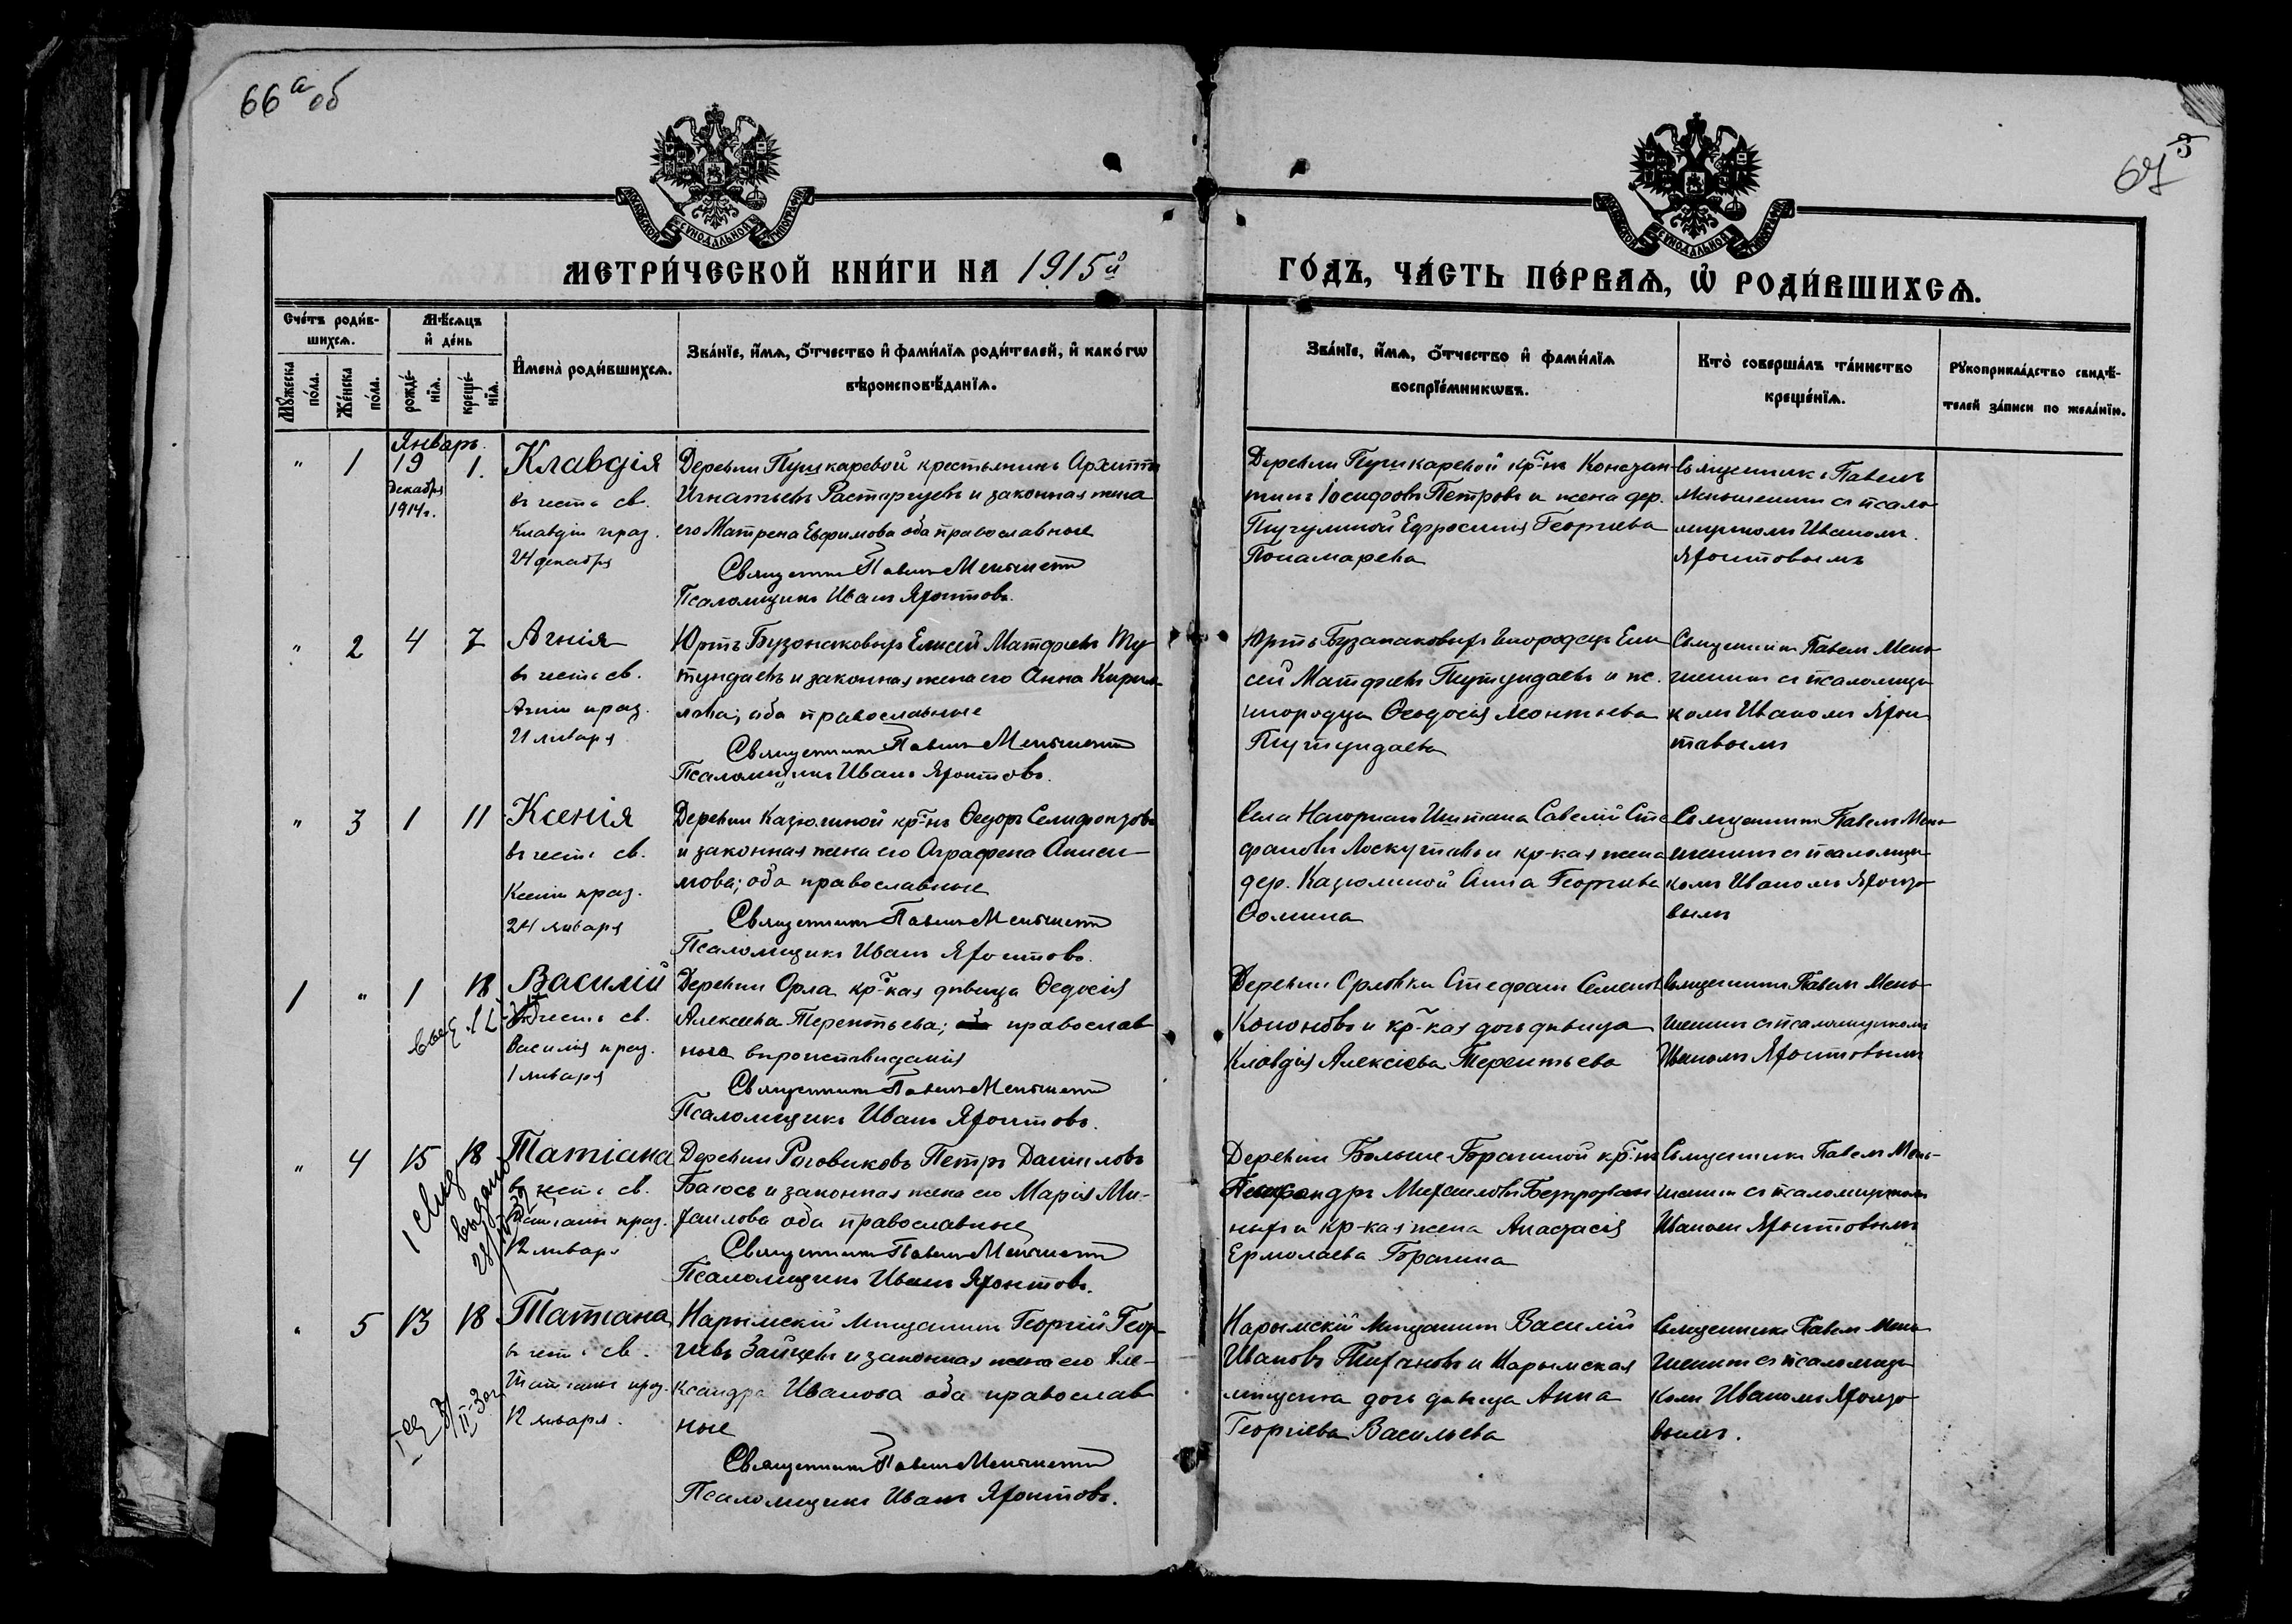 66 а об
67
МОСКОВСКОЙ СѴНОДАЛЬНОЙ ТИПОГРАФІИ
МОСКОВСКОЙ СѴНОДАЛЬНОЙ ТИПОГРАФІИ
МЕТРИ́ЧЕСКОЙ КНИ́ГИ НА 1915й
ГО́ДЪ, ЧА́СТЬ ПЕ́РВАѦ, Ѡ҆ РОДИ́ВШИХСѦ.
Сче́тъ роди́в-
шихсѧ.
Мꙋ́жеска
по́ла.
Же́нска
по́ла.
Мѣ́сѧцъ
и҆ де́нь
рожде́-
нїѧ.
креще́-
нїѧ.
И҆мена̀ роди́вшихсѧ.
Зва́нїе, и҆́мѧ, ѻ҆́тчество и҆ фами́лїѧ роди́телей, и҆ како́гѡ
вѣроисповѣ́данїѧ.
Зва́нїе, и҆́мѧ, ѻ҆́тчество и҆ фами́лїѧ
воспрїе́мникѡвъ.
Кто̀ соверша́лъ та́инство
креще́нїѧ.
Рꙋкоприкла́дство свидѣ́-
телей за́писи по жела́нїю.
Январь.
" 1 19 1.
Декабря
1914г.
Клавдія
въ честь св.
Клавдіи праз.
24 декабря
Деревни Пушкаревой крестьянинъ Архиппъ
Игнатьевъ Расторгуевъ и законная жена
его Матрена Евфимова оба православные
Священникъ Павелъ Меньшенинъ
Псаломщикъ Иванъ Яхонтовъ.
Деревни Пушкаревой кр-нъ Констан-
тинъ Іосифовъ Петровъ и жена дер.
Евфросинія Георгіева
Понамарева
Священникъ Павелъ
Меньшенинъ съ псало-
мщикомъ Иваномъ
Яхонтовымъ
" 2 4 7
Агнія
въ честь св.
Агніи праз.
21 января
Юртъ Елисей Матфіевъ Ту-
тундаевъ и законная жена его Анна Кирил-
лова; оба православные
Священникъ Павелъ Меньшенинъ
Псаломщикъ Иванъ Яхонтовъ.
Юртъ инородецъ Ели-
сей Матфіевъ Тутундаевъ и
инородца Ѳеодосія Леонтьева
Тутундаева
Священникъ Павелъ Мень-
шенинъ съ псаломщи-
комъ Иваномъ Яхон-
товымъ
" 3 1 11
Ксенія
въ честь св.
Ксеніи праз.
24 января
Деревни Казюлиной кр-нъ Ѳеодоръ
и законная жена его Аграфена Аниси-
мова; оба православные
Священникъ Павелъ Меньшенинъ
Псаломщикъ Иванъ Яхонтовъ.
Села Нагорнаго Иштана Савелій Сте-
фановъ Лоскутовъ и кр-кая жена
дер. Казюлиной Анна Георгіева
Ѳомина
Священникъ Павелъ Мень-
шенинъ съ псаломщи-
комъ Иваномъ Яхонто-
вымъ
1 " 1 18
Василій
въ честь св.
Василія праз.
1 января
Деревни Орла кр-кая дѣвица Ѳедосія
Алексіева Терентьева; православ-
наго вѣроисповѣданія
Священникъ Павелъ Меньшенинъ
Псаломщикъ Иванъ Яхонтовъ.
Деревни Орловки Стефанъ Семеновъ
Кононовъ и кр-кая дочь дѣвица
Клавдія Алексіева Терентьева
Священникъ Павелъ Мень-
шенинъ съ псаломщикомъ
Иваномъ Яхонтовымъ
" 4 15 18
Татіана
въ честь св.
Татіаны праз.
12 января
выдано
Деревни Роговиковъ Петръ Даниловъ
Баюсъ и законная жена его Марія Ми-
хаилова оба православные
Священникъ Павелъ Меньшенинъ
Псаломщикъ Иванъ Яхонтовъ.
Деревни Больше-Брагиной кр-нъ
Михаиловъ
и кр-кая жена Анастасія
Ермолаева Брагина
Священникъ Павелъ Мень-
шенинъ съ псаломщикомъ
Иваномъ Яхонтовымъ
" 5 13 18
Татіана,
въ честь св.
Татіаны праз.
12 января.
Нарымскій мѣщанинъ Георгій Геор-
гіевъ Зайцевъ и законная жена его Але-
ксандра Иванова оба православ-
ные
Священникъ Павелъ Меньшенинъ
Псаломщикъ Иванъ Яхонтовъ.
Нарымскій мѣщанинъ Василій
Ивановъ и Нарымская
мѣщанка дочь дѣвица Анна
Георгіева Васильева
Священникъ Павелъ Мень-
шенинъ съ псаломщи-
комъ Иваномъ Яхонто-
вымъ.